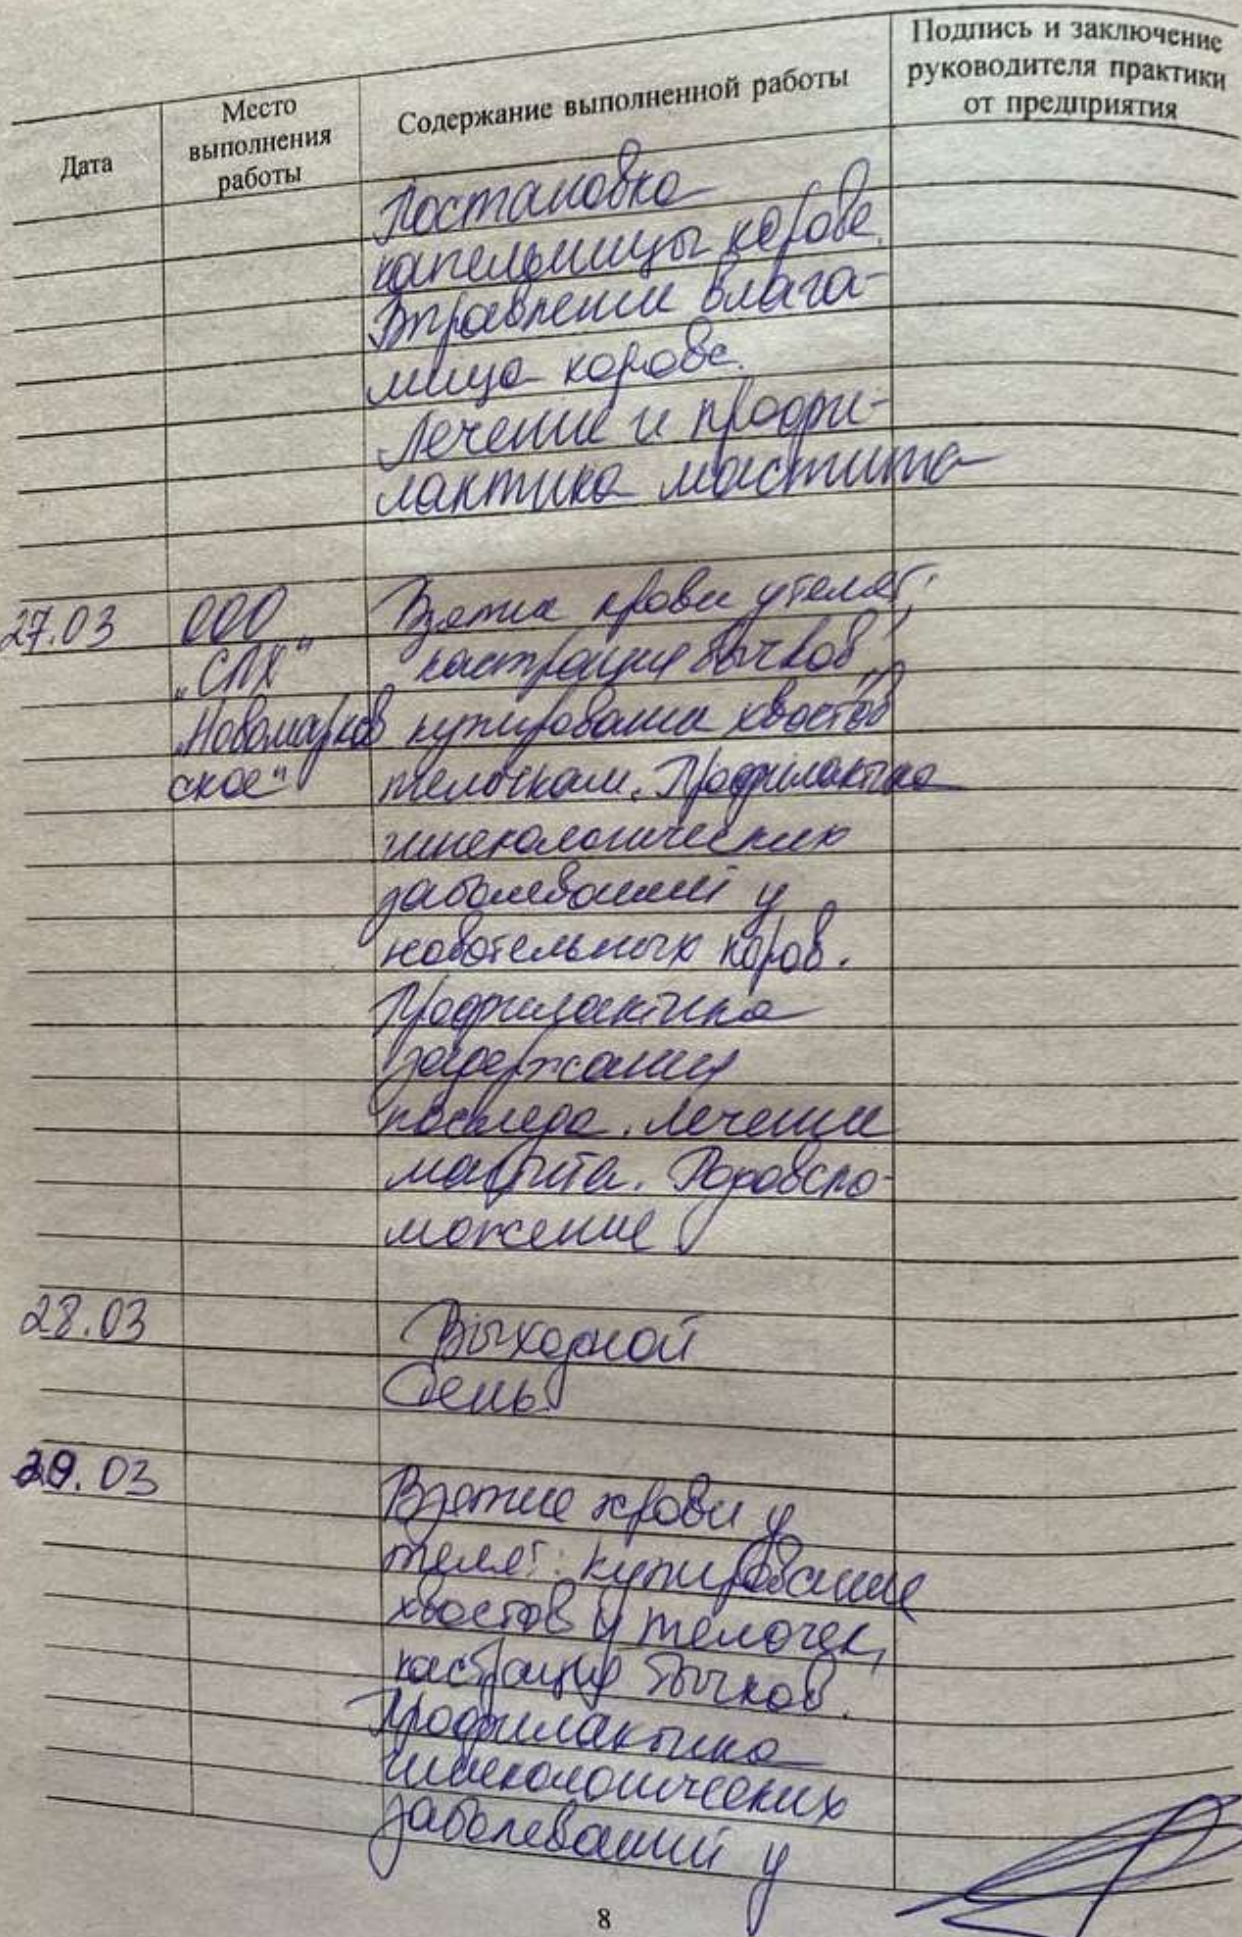 Дата
Место
выполнения
работы
Содержание выполненной работы
Подпись и заключение
руководителя практики
от предприятия
Постановка
капельницы корове.
Вправлении влага-
лища корове.
Лечение и профи-
лактика мастита
27.03
ООО
„СПХ"
„Новомарков
ское"
Взятие крови у телят,
кастрация бычков,
купирование хвостов
телочкам. Профилактика
гинекологических
заболеваний у
новотельных коров.
Профилактика
задержания
последа. Лечение
мастита. Родовспо-
можение
28.03
Выходной
День
29.03
Взятие крови у
телят. купирование
хвостов у телочек,
кастрация бычков.
Профилактика
гинекологических
заболеваний у
8